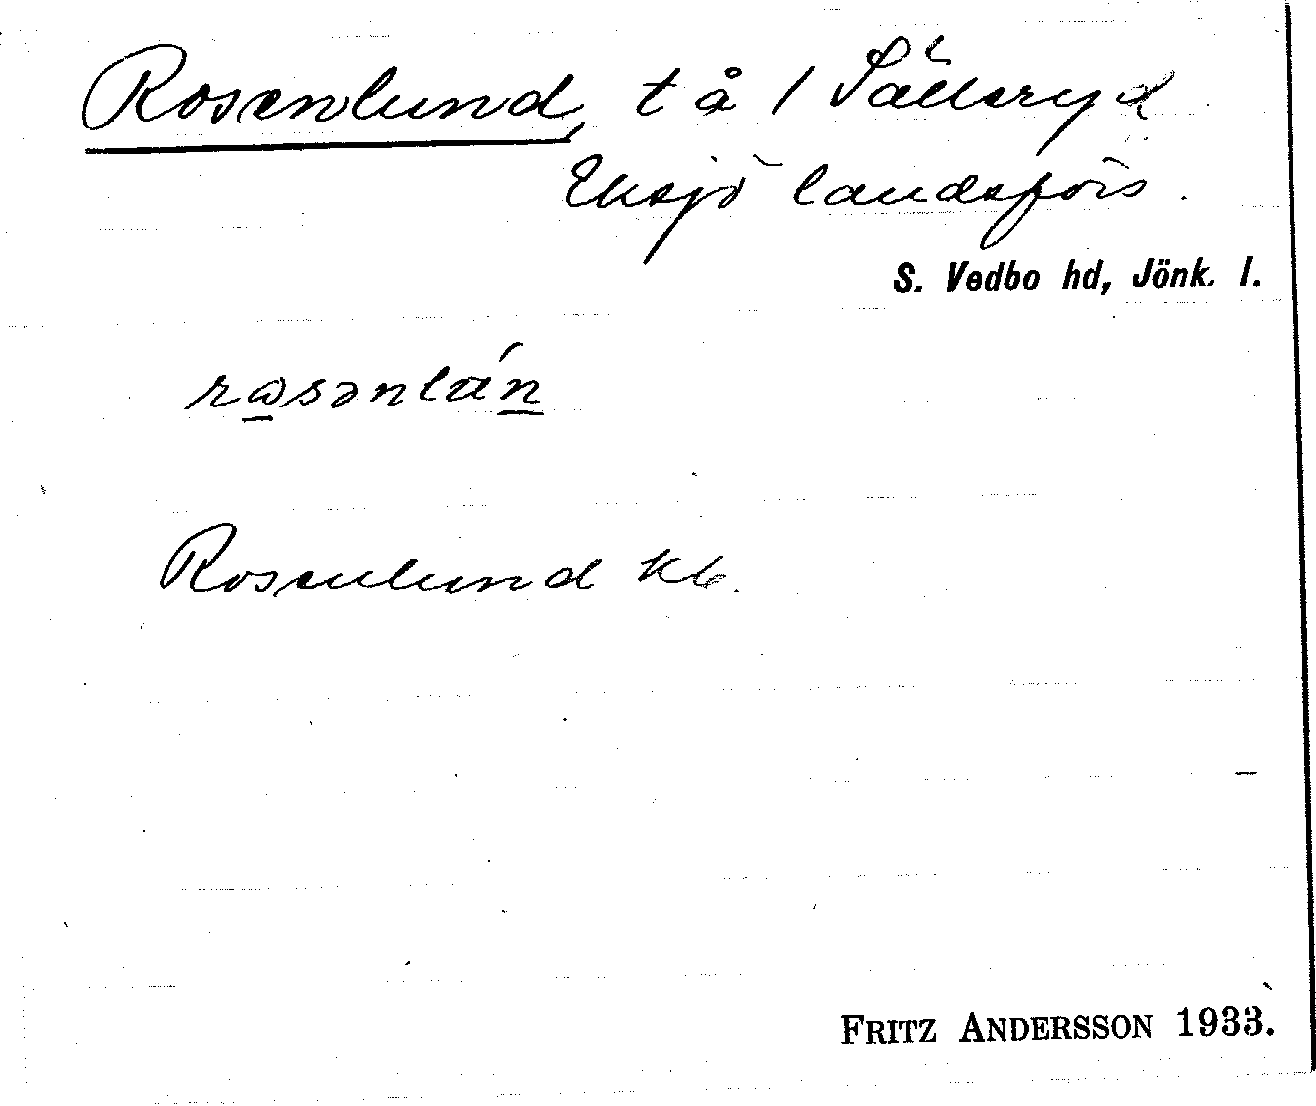 Rosenlund, t å / Sällsryd
Eksjö landsförs.
S. Vedbo hd, Jönk. l.
Rosenlund kb.
FRITZ ANDERSSON 1933.